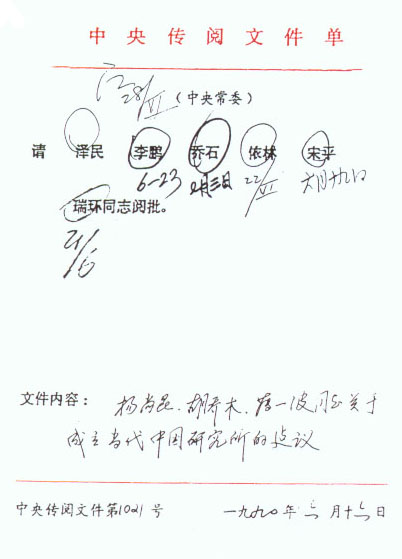 中央传阅文件单
江 28/VI（中央常委）
请 泽民 李鹏 乔石 依林 宋平
6-23 月三日 22/VI 六月十九日
瑞环同志阅批。
21/6
文件内容：杨尚昆、胡乔木、薄一波同志关于
成立当代中国研究所的建议
中央传阅文件第1021号 一九九〇年六月十六日